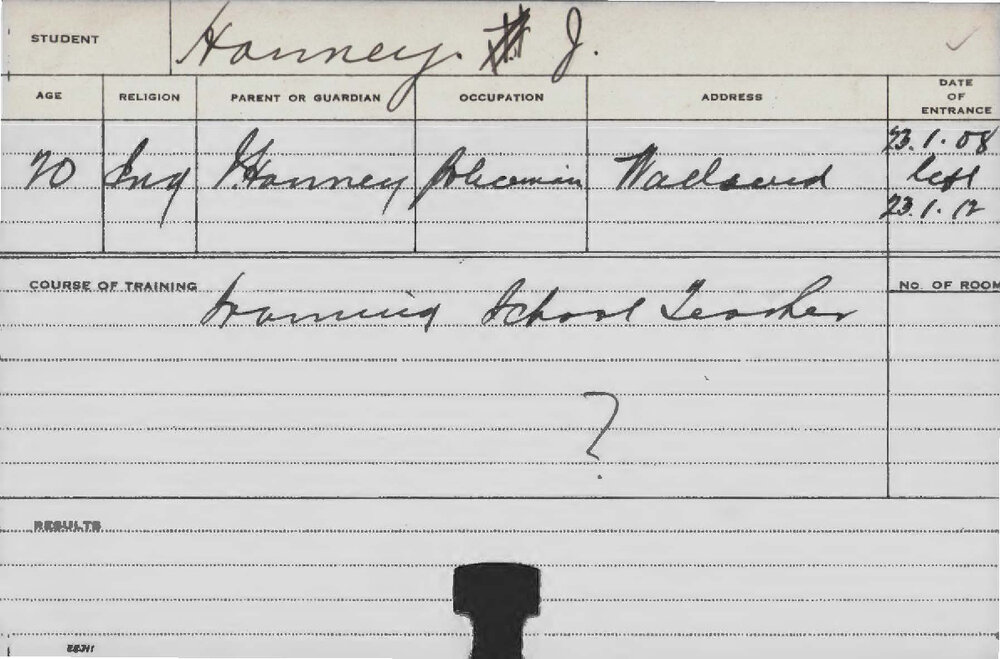 STUDENT Hanney. J.
AGE RELIGION PARENT OR GUARDIAN OCCUPATION ADDRESS DATE OF ENTRANCE
20 J. Hanney Policeman Wallsend 23.1.08
left
23.1.12
COURSE OF TRAINING Training School Teacher
No. OF ROOM
?
RESULTS